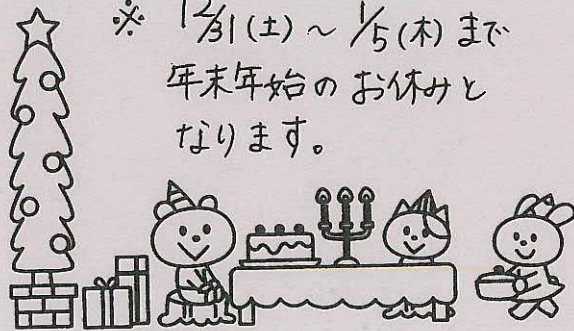 ※ 12/31(土)～1/5(木)まで
年末年始のお休みと
なります。